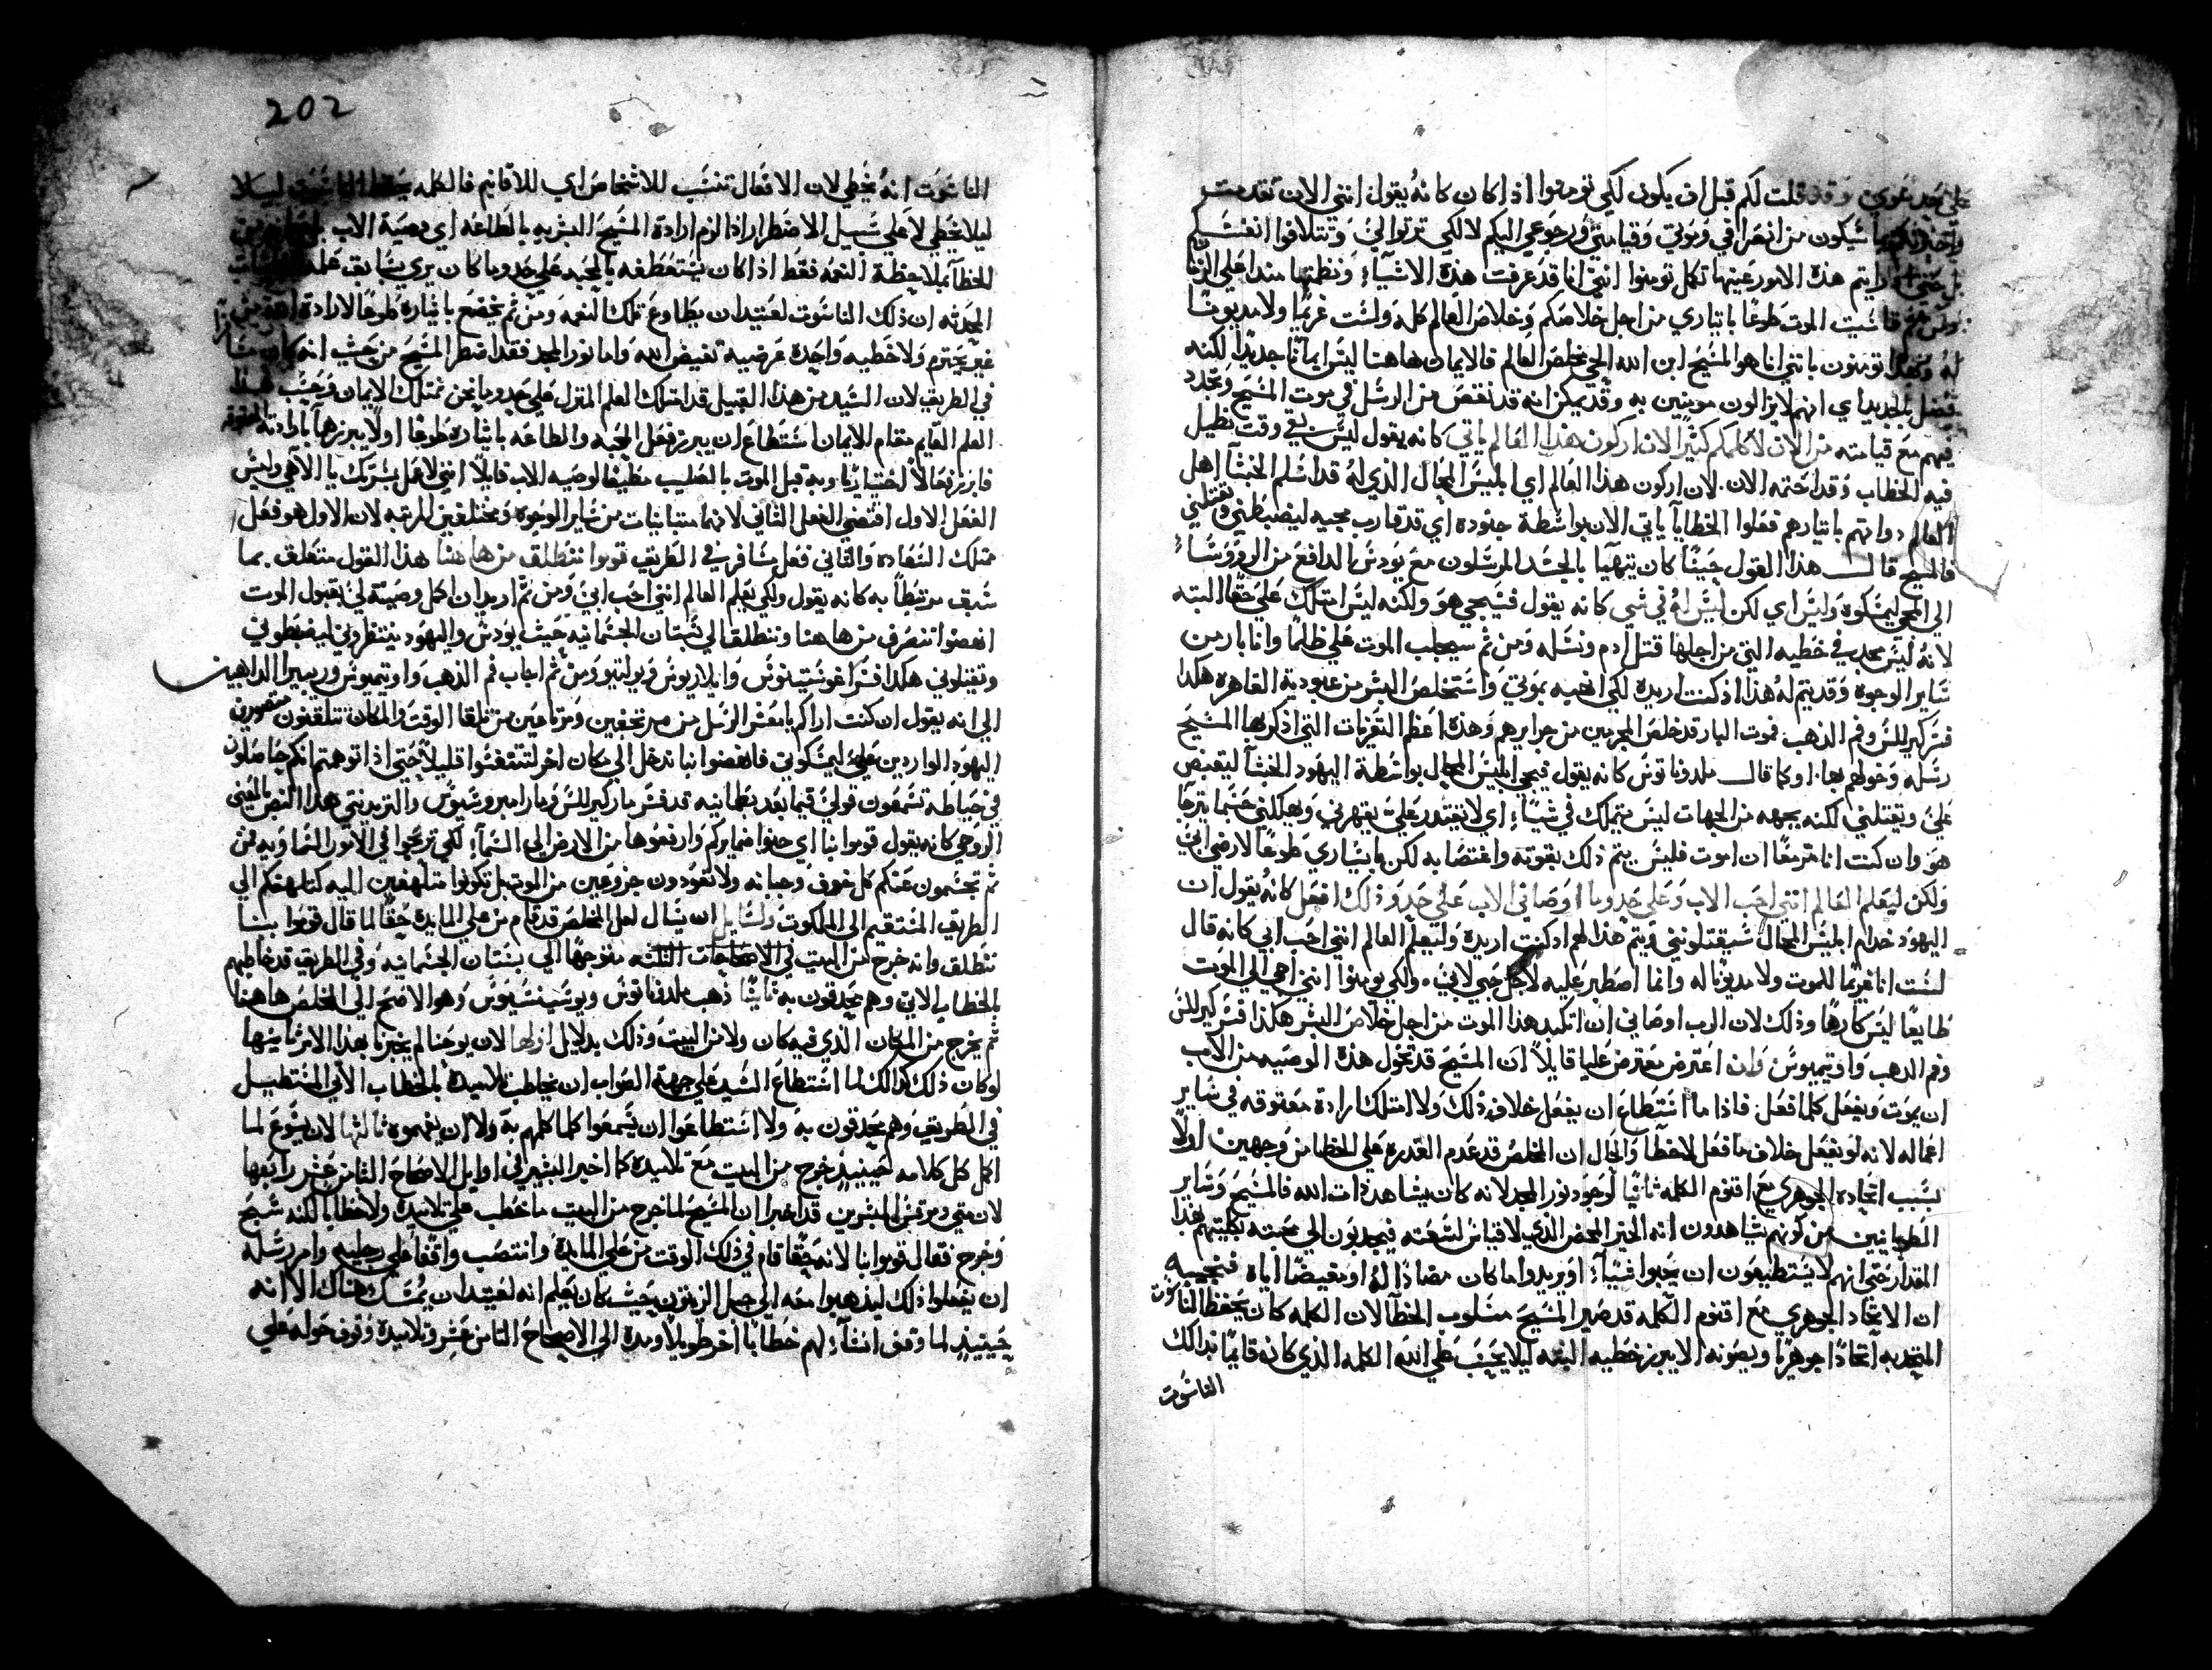 وقد قلت لكم قبل ان يكون لكي تومنوا اذا كان كانه يقول انني الان تقدمت
سيكون من انصرافي وموتي وقيامتي ورجوعي اليكم لا لكي ترتوا لي وتتلافوا انفسكم
رايتم هذه الامور عينها تكمل تومنوا انني انا قد عرفت هذه الاشيآء ونظمتها منذ اعلي الزمان
قاسيت الموت طوعًا باتياري من اجل خلاصكم وخلاص العالم كله ولست غريمًا ولا مديونًا
له وهكذا تومنون بانني انا هو المسيح ابن الله الحي مخلص العالم فالايمان هاهنا ليس ايمانًا جديدًا لكنه
بالجديد اي انهم لا يزالون مومنين به وقد يمكن انه قد نقص من الرسل في موت المسيح وتجدد
فيهم مع قيامته من الان لا اكلمكم كثيرًا لان اركون هذا العالم ياتي كانه يقول ليس بقي وقت نطيل
فيه الخطاب وقد اختمه الان لان اركون هذا العالم اي ابليس المحال الذي له قد اسلم الخبثآ اهل
العالم ذواتهم باتيارهم ففعلوا الخطايا ياتي الان بواسطة جنوده اي قد قارب مجيه ليضبطني وتقتلني
فالمسيح قال هذا القول حيثما كان يتهيآ بالجسد المرسلون مع يودس الدافع من الروسآء
الي المجي ليمسكوه وليس اي لكن ليس له في شي كانه يقول فسيجي هو ولكنه ليس امتلك علي حقًا البته
لانه ليس يجد في خطيه التي من اجلها قتل ادم ونسله ومن ثم سيجلب الموت علي ظلمًا وانا بار من
ساير الوجوه وقد يتم له هذا اذ كنت اريده لكي افحيه بموتي واستخلص البشر من عبودية القاهره هكذا
فسر كيرللس وفم الذهب فموت البار قد خلص المجرمين من جرايرهم وهذه اعظم التعزيات التي اذكر بها المسيح
رسله وخولهم بها. او كما قال ملدوناتوس كانه يقول فيجي ابليس المحال بواسطة اليهود الخبثآ ليقبض
علي ويقتلني لكنه بجهه من الجهات ليس يتملك في شيًا اي لا يقتدر علي يقهرني ويهلكني حسما يترجا
هو وان كنت انا مزمعًا ان اموت فليس يتم ذلك بقوته واغتصابه لكن باتياري طوعًا لارضي ابي
ولكن ليعلم العالم انني احب الاب وعلي حدوما اوصاني الاب علي حدو ذلك افعل كانه يقول ان
اليهود خدام ابليس المحال سيقتلونني ويتم هذا لهم اذ كنت اريده وليعلم العالم انني احب ابي كانه قال
لست انا غريمًا للموت ولا مديونًا له وانما اصطبر عليه لاجل حبي لابي. ولكي يومنوا انني اجي الي الموت
طايعًا ليس كارهًا وذلك لان الرب اوصاني ان اتكبد هذا الموت من اجل خلاص البشر هكذا فسر كيرللس
وفم الذهب واوتيميوس وان اعترض معترض علينا قايلًا ان المسيح قد تخول هذه الوصيه من الاب
ان يموت ويفعل كلما فعل. فاذا ما استطاع ان يفعل خلاف ذلك ولا امتلك ارادة معتوقه في ساير
اعماله لانه لو يفعل خلاف ما فعل لاخطآ والحال ان المخلص قد عدم القدره علي الخطا من وجهين اولًا
بسبب اتحاده الجوهري مع اقنوم الكلمه ثانيًا لوجود نور المجد لانه كان يشاهد ذات الله فالمسيح وساير
الطوبانيين من كونهم يشاهدون انه الخير المحض الذي لا قياس لسعته فيجدبون الي محبته بكليتهم بهذا
المقدار حتي انهم لا يستطيعون ان يحبوا شيآء او يريدوا ما كان مضادًا له او مغيضًا اياه فنجيبه
ان الاتحاد الجوهري مع اقنوم الكلمه قد صير المسيح مسلوب الخطآ لان الكلمه كان يحفظ الناسوت
المتحد به اتحادًا جوهريًا ويصونه الا يبرز خطيه البته ليلا يحسب علي الله الكلمه الذي كان قايمًا بدالك
الناسوت
202
الناسوت انه يخطي لان الافعال تنسب للاشخاص اي للاقانيم فالكلمه يحفظ الناسوت ليلا
ليلا يخطي لا علي سبيل الاضطرار اذا لزم ارادة المسيح البشريه بالطاعه اي وصية الاب
الخطآ بملاحظة النعمه فقط اذا كان يستعطفه بالمجد علي حدوما كان يري بسابق علمه
المحدثه ان ذلك الناسوت لعتيد ان يطاوع تلك النعمه ومن ثم يخضع باتياره طوعًا لارادة الله
غير مجترم ولا خطيه واحده عرضية تغيض الله واما نور المجد فقد اضطر المسيح من حيث انه كان مسافرًا
في الطريق لان السيد من هذا القبيل قد امتلك العلم المنزل علي حدوما نحن نمتلك الايمان فحسب هذا
العلم القايم مقام الايمان استطاع ان يبرز فعل المحبه والطاعه باتياره طوعًا اولا يبرزها بارادته المعتوقه
فابرز فعالًا اختياريًا وبه قبل الموت بالصليب مطيعًا لوصيه الاب قايلًا انني لافعل بسرتك يا الاهي وليس
الفعل الاول اقتضي الفعل الثاني لانهما متباينات من ساير الوجوه ومختلفين المرتبه لان الاول هو فعل
ممتلك السعاده والثاني فعل مسافر في الطريق قوموا ننطلق من ها هنا هذا القول متعلق بما
سبق مرتبطًا به كانه يقول ولكي يعلم العالم انني احب ابي ومن ثم اريد ان اكمل وصيته لي بقبول الموت
انهضوا ننصرف من هاهنا وننطلق الي بستان الجثمانيه حيث يودس واليهود ينتظروني ليضبطوني
وتقتلوني هكذا فسر اغوستينوس وايلاريوس وريولتيو ومن ثم اجاب فم الذهب واوتيميوس وريبيرا الداهبين
الي انه يقول ان كنت اراكم يا معشر الرسل من مرتجفين ومرتاعين من تلقا الوقت والمكان تتلقنون متصورين
اليهود الواردين علي ليمسكوني فانهضوا بنا ندخل الي مكان اخر لتتنفسوا قليلًا حتي اذا توهمتم انكم حاصلون
في حياطه تسمعون قولي فيما بعد بطمانيه قد فسر مار كيرللس ومار امبروسيوس والتريدنتي هذا النص بالمعني
الروحي كانه يقول قوموا بنا اي حلوا ضمايركم وارفعوها من الارض الي السمآء لكي ترغبوا في الامور السماويه فمن
ثم تحسمون عنكم كل خوف وجبانه ولا تعودون جزوعين من الموت بل تكونوا متلهفين اليه كتلهفكم الي
الطريق المستقيم الي الملكوت ولسايل ان يسال لعل المخلص قد قام من علي المايده حقًا لما قال قوموا بنا
ننطلق وانه خرج من البيت في الاصحاحات الثلثه متوجهًا الي بستان الجثمانيه وفي الطريق قد خاطبهم
بالخطاب الاتي وهم يحدقون به ثانيًا ذهب ملدوناتوس ويوسينسيوس وهو الاصح الي المخلص ها هنا
ثم يخرج من المكان الذي فيه كان ولا من البيت وذلك بدلايل اولها لان يوحنا لم يخبرنا بهذا الامر ثانيتها
لو كان ذلك كذالك لما استطاع السيد علي جهة الصواب ان يخاطب تلاميده بالخطاب الاتي المستطيل
في الطريق وهم يحدقون به ولا استطاعوا ان يسمعوا كلما كلمهم به ولا ان يفهموه ثالثها لان يسوع لما
اكمل كل كلامه حينيذٍ خرج من البيت مع تلاميده كما اخبر البشير في اوايل الاصحاح الثامن عشر رابعها
لان متي ومرقس المبشرين قد اخبرا ان المسيح لما خرج من البيت ما خطب علي تلاميده ولا خطابًا لكنه سبح
وخرج فقال قوموا بنا لانه حقًا قام في ذلك الوقت من علي المايده وانتصب واقفًا علي رجليه وامر رسله
ان يفعلوا ذلك ليذهبوا معه الي جبل الزيتون حيث كان يعلم انه لعتيد ان يمسك وهناك الا انه
حينيذٍ لما وقف انشآء لهم خطابًا اخر طويلًا ومده الي الاصحاح الثامن عشر وتلاميده وقوف حوله علي